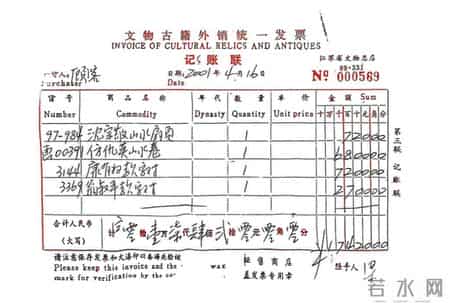 文物古籍外销统一发票
INVOICE OF CULTURAL RELICS AND ANTIQUES
记账联
江苏省文物总店
99-331
购货人: 顾客
Purchaser
日期: 2001年4月16日
Date
No 000569
货号 商品名称 年代 数量 单价 金额 Sum
Number Commodity Dynasty Quantity Unit price 十万千百十元角分
97-984 沈 山水扇面 1 72000
西00391 仿仇英山水卷 1 680000
3144 康有为款字对 1 720000
3369 俞叔平款字对 1 270000
第三联 记账联
合计人民币
(大写) 零拾壹万柒仟肆佰贰拾零元零角零分 ¥1742000
请注意保存发票和火漆印以备海关检验
Please keep this invoice and the wax
mark for verification by the
销售商店
盖发票专用章
经手人
若水网